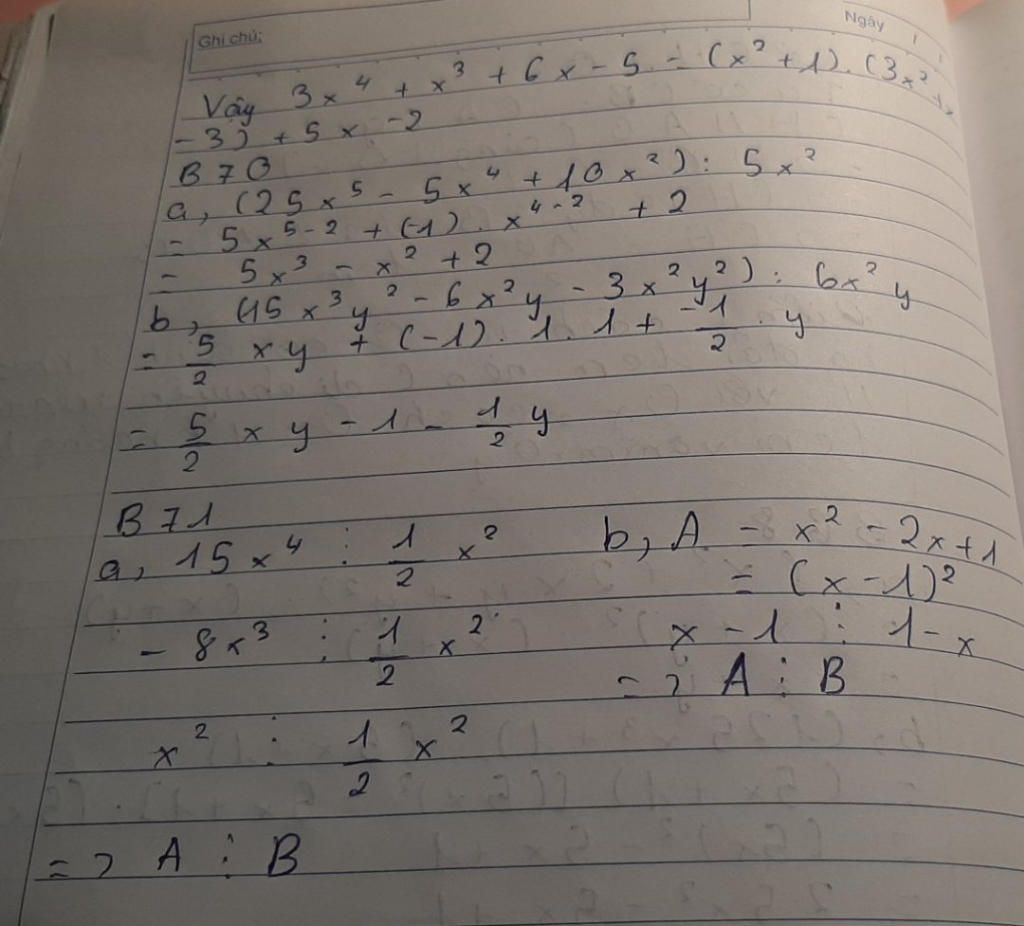 Ghi chú:
Ngày / /
Vậy 3x⁴ + x³ + 6x - 5 = (x² + 1) . (3x² + x
- 3) + 5x - 2
B70
a, (25x⁵ - 5x⁴ + 10x²) : 5x²
= 5x⁵⁻² + (-1) . x⁴⁻² + 2
= 5x³ - x² + 2
b, (15x³y² - 6x²y - 3x²y²) : 6x²y
= 5/2 xy + (-1) . 1 . 1 + -1/2 . y
= 5/2 xy - 1 - 1/2 y
B71
a, 15x⁴ ⋮ 1/2 x²
- 8x³ ⋮ 1/2 x²
x² ⋮ 1/2 x²
=> A ⋮ B
b, A = x² - 2x + 1
= (x - 1)²
x - 1 ⋮ 1 - x
=> A ⋮ B